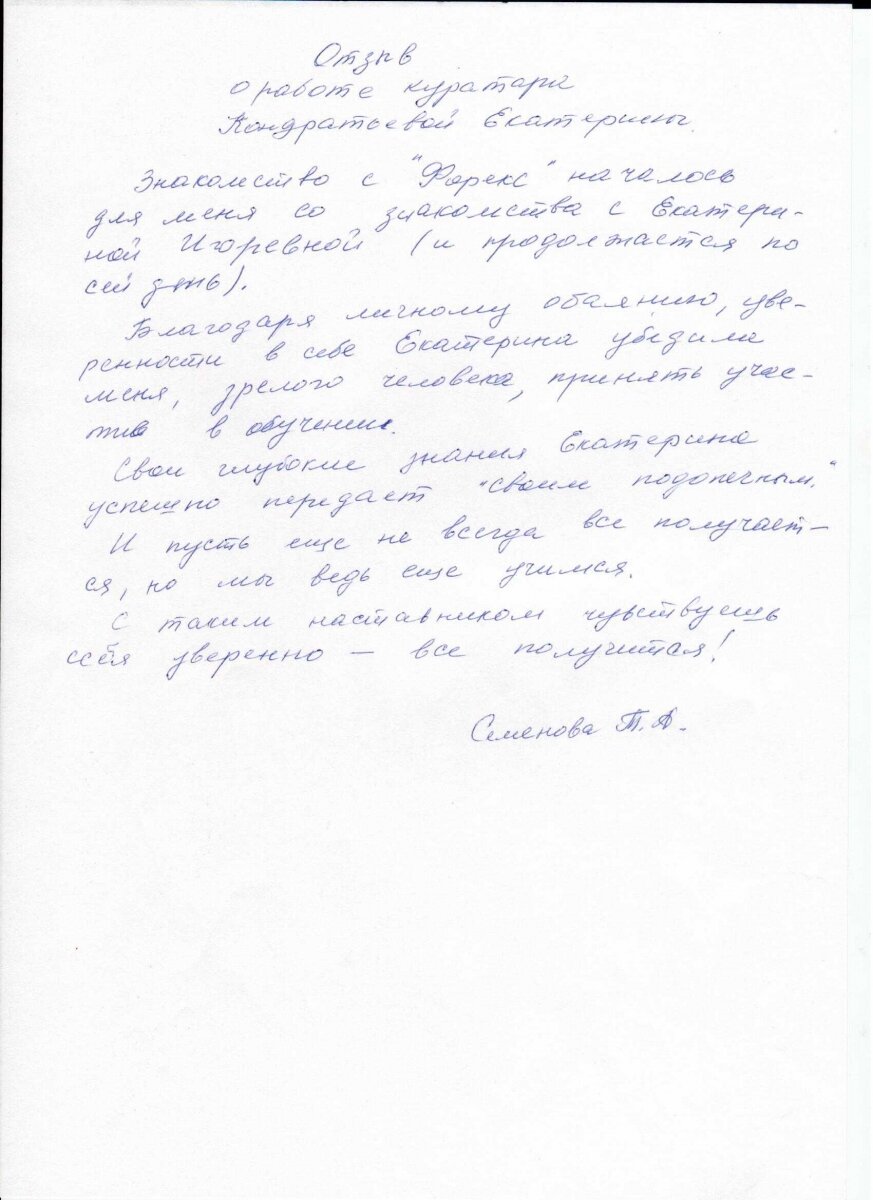 Отзыв
о работе куратара
Кондратьевой Екатерины.
Знакомство с "Форекс" началось
для меня со знакомства с Екатери-
ной Игоревной (и продолжается по
сей день).
Благодаря личному обаянию, уве-
ренности в себе Екатерина убедила
меня, зрелого человека, принять учас-
тие в обучении.
Свои глубокие знания Екатерина
успешно передает "своим подопечным."
И пусть еще не всегда все получает-
ся, но мы ведь еще учимся.
С таким наставником чувствуешь
себя уверенно — все получится!
Семенова Т.А.